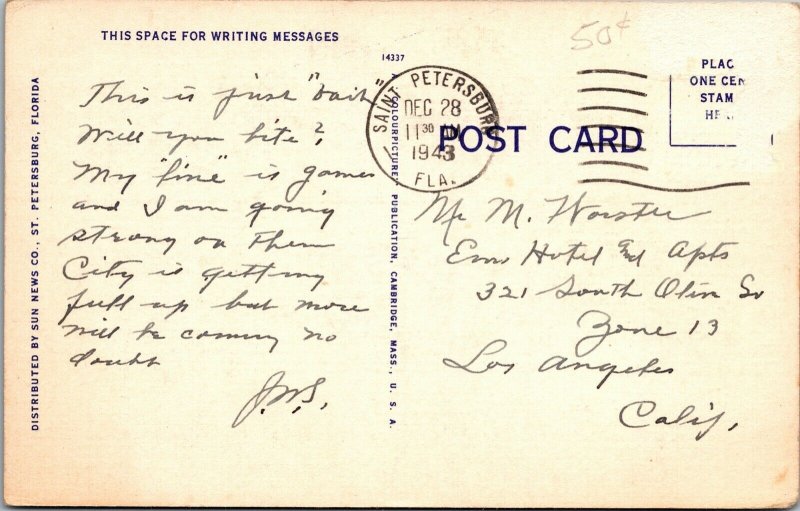 THIS SPACE FOR WRITING MESSAGES
This is just "bait"
Will you bite?
My "line" is games
and I am going
strong on them
City is getting
full up but more
will be coming no
doubt
J.W.S.
DISTRIBUTED BY SUN NEWS CO., ST. PETERSBURG, FLORIDA
14337
COLOURPICTURE PUBLICATION, CAMBRIDGE, MASS., U. S. A.
50¢
SAINT PETERSBURG
DEC 28
11 30 AM
1943
FLA.
POST CARD
PLAC
ONE CEN
STAM
HE
Mr M. Worster
Hotel and Apts
321 South Olive St
Zone 13
Los Angeles
Calif,